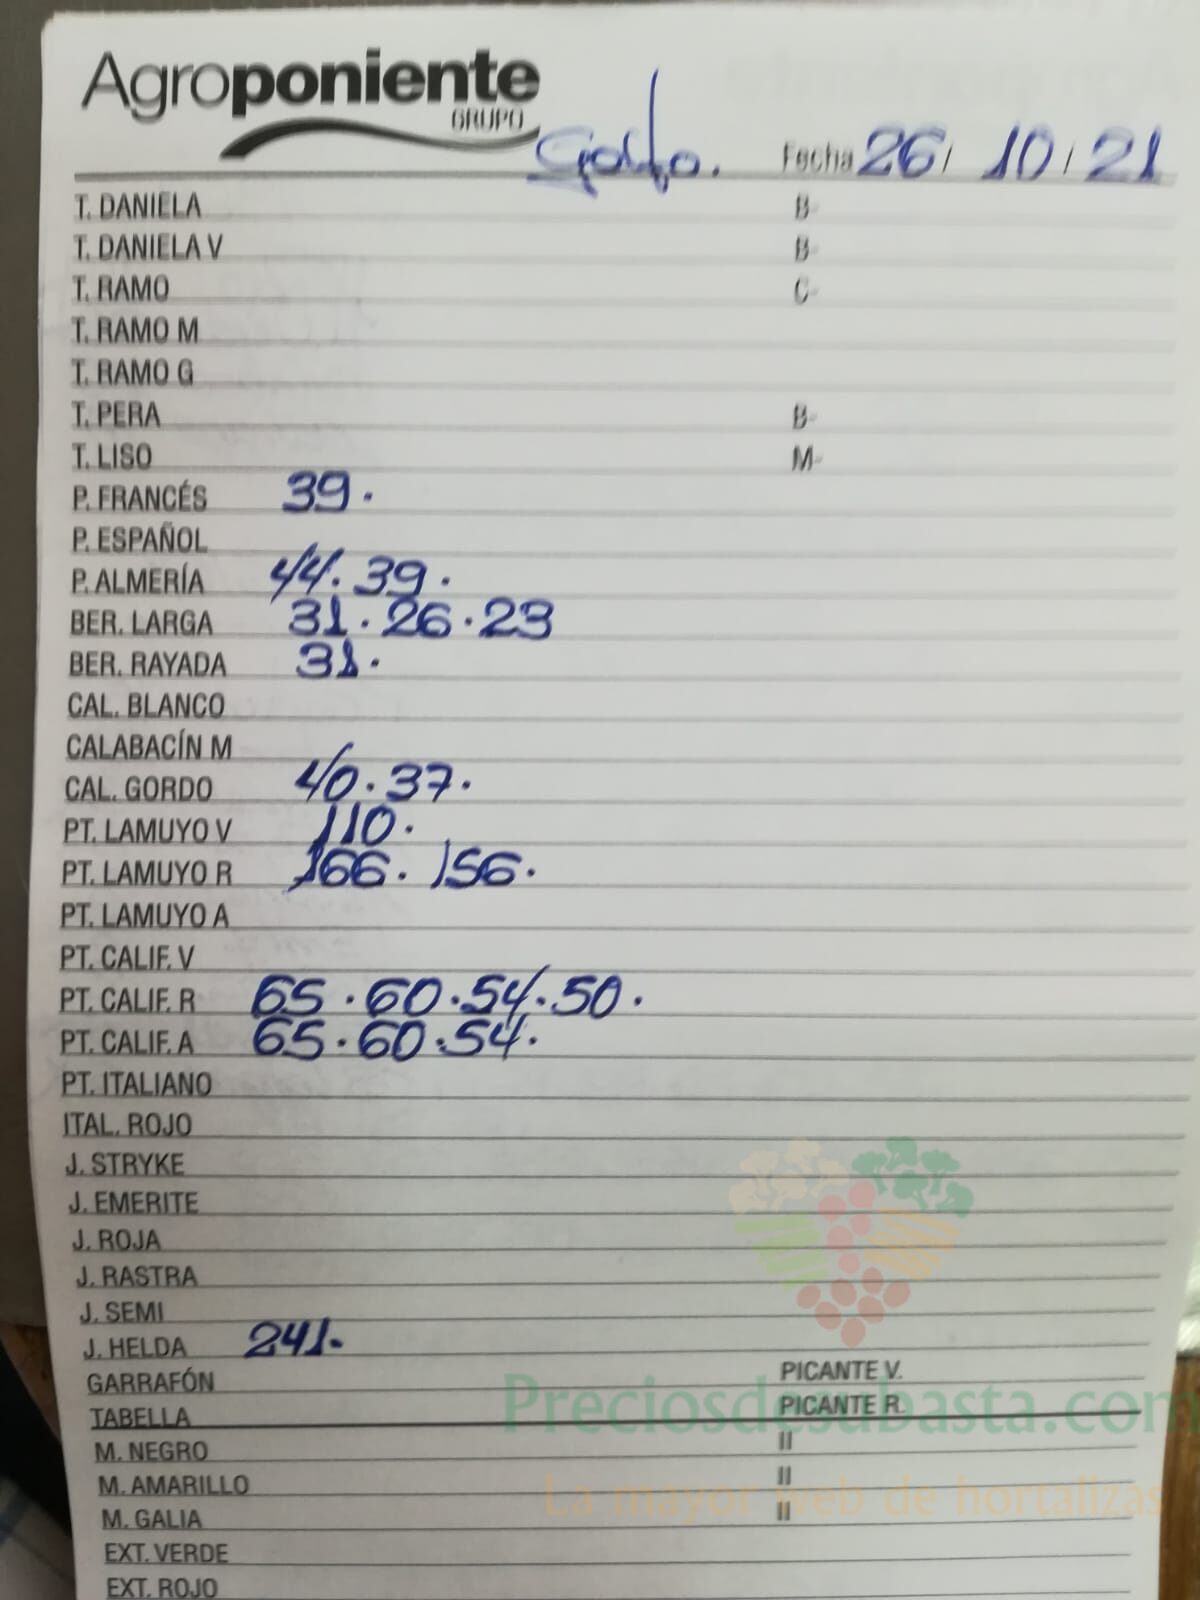 Agroponiente
GRUPO
Golfo. Fecha 26/ 10/ 21
T. DANIELA B-
T. DANIELA V B-
T. RAMO C-
T. RAMO M
T. RAMO G
T. PERA B-
T. LISO M-
P. FRANCÉS 39.
P. ESPAÑOL
P. ALMERÍA 44. 39.
BER. LARGA 31. 26. 23
BER. RAYADA 31.
CAL. BLANCO
CALABACÍN M
CAL. GORDO 40. 37.
PT. LAMUYO V 110.
PT. LAMUYO R 166. 156.
PT. LAMUYO A
PT. CALIF. V
PT. CALIF. R 65. 60. 54. 50.
PT. CALIF. A 65. 60. 54.
PT. ITALIANO
ITAL. ROJO
J. STRYKE
J. EMERITE
J. ROJA
J. RASTRA
J. SEMI
J. HELDA 241.
GARRAFÓN PICANTE V.
TABELLA PICANTE R.
Preciosdesubasta.com
M. NEGRO II
M. AMARILLO II
La mayor web de hortalizas
M. GALIA II
EXT. VERDE
EXT. ROJO